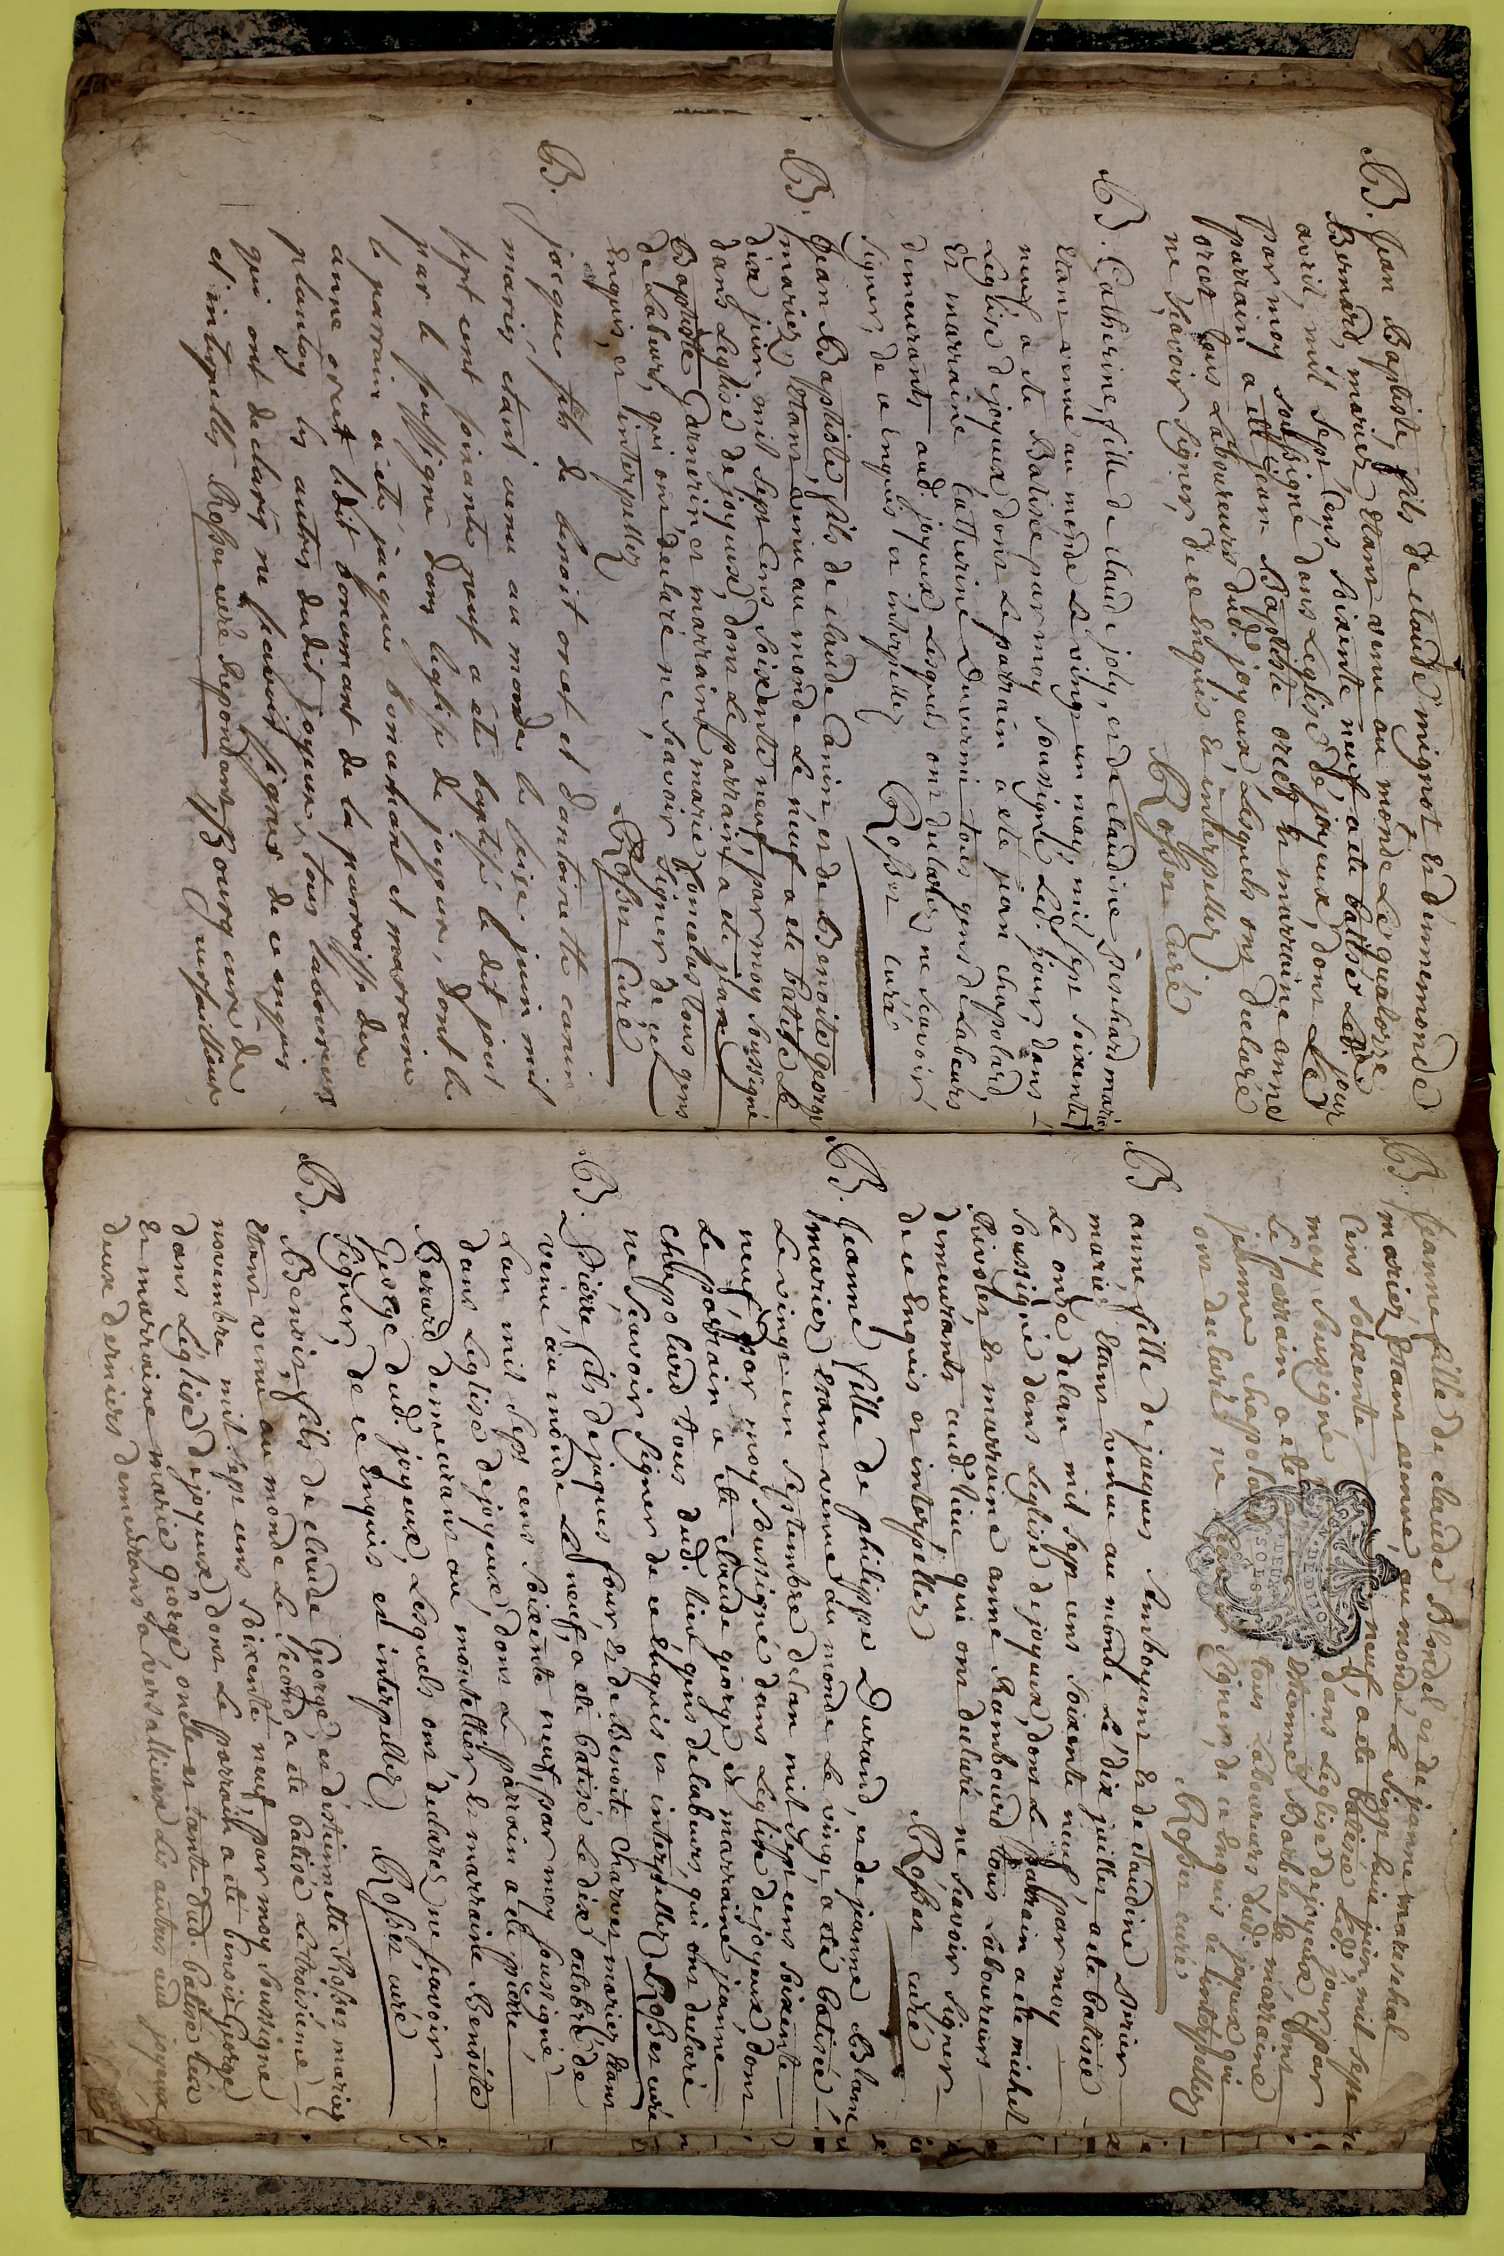 B. Jean Baptiste, fils de claude mignot & d'ennemonde
Bernard, mariez etant venu au monde le quatorze
avril, mil sept cens soixente neuf a ete batisé led. jour
par moy soussigné dans l'eglise de joyeux, dont le
parrain a ete jean Baptiste oriet & marraine anne
oriet tous laboureurs dud. joyeux, lesquels ont declaré
ne scavoir signer, de ce enquis & interpellez
Rosset curé
B. Catherine, fille de claude joly, et de claudine penhard mariez
etant venue au monde le vingt un may, mil sept soixente
neuf a ete Batisée par moy soussigné led. jour, dans
l'eglise de joyeux dont le parrain a eté jean chapolard
et marraine Catherine Duverni tous gens de Labeurs
demeurants aud. joyeux, lesquels ont declarez ne scavoir
signer, de ce enquis et interpellez Rosset curé
B. Jean Baptiste, fils de claude Canin et de Benoite george
mariez, etant venu au monde le neuf a ete batisé le
dix juin mil sept cens soixente neuf, par moy soussigné
dans l'eglise de joyeux, dont le parrain a ete jean
Baptiste Garnerin et marraine marie tous gens
de Labeurs, qui ont declaré ne scavoir signer de ce
enquis, et interpellez Rosset Curé
B. jacque fils de benoit oriet et d'antoinette canin
mariés etant venu au monde le seize juin mil
sept cent soixante neuf a ete baptisé le dit jour
par le soussigné dans leglise de joyeux, dont le
le parrain a eté jacques bonamant et marraine
anne oriet ledit bonamant de la parroisse du
plantay les autres dudit joyeux, tous laboureurs
qui ont declarés ne scavoir signer de ce enquis
et interpellés Rosset curé Repondant Bourg curé de
versailleux
B. Jeanne fille de claude Blondel et de jeanne mareschal
mariez, etant venue au monde le sept huit juin, mil sept
cens soixente neuf, a ete batisée led. jour par
moy soussigné dans l'eglise de joyeux, dont
le parrain a ete etienne Barbet & marraine
jeanne chapolard tous laboureurs dud. joyeux qui
ont declaré ne scavoir signer, de ce enquis & interpellez
Rosset curé
B anne fille de jaques & de claudine
mariés etant venue au monde le dix juillet a ete batisée
le onze de l'an mil sept cens soixente neuf, par moy
soussigné dans l'eglise de joyeux, dont le parrain a ete michel
& marraine anne Rambourd tous laboureurs
demeurants aud. lieu qui ont declaré ne scavoir signer
de ce enquis et interpellez Rosset curé
B. Jeanne fille de philippe Durand, et de jeanne Blanc
mariez etant venue au monde le vingt a eté batisée
le vingt un septembre de l'an mil sept cens soixente
neuf, par moy soussigné dans l'eglise de joyeux, dont
le parrain a ete claude george, et marraine jeanne
chapolard tous dud. lieu gens de labeurs, qui ont declaré
ne scavoir signer de ce enquis et interpellez Rosset curé
B. Pierre fils de jaques four & de Benoite charvet, mariez etant
venu au monde le neuf, a eté batisé le dix octobre de
l'an mil sept cens soixente neuf, par moy soussigné
dans l'eglise de joyeux, dont le parrain a ete pierre
Berard demeurant au montellier & marraine Benoite
George dud. joyeux, lesquels ont declarez ne scavoir
signer, de ce enquis et interpellez. Rosset curé
B. Benoit, fils de claude George, et d'estiennette Rosset mariez
etant venu au monde le second a ete batisé le troisieme
novembre mil sept cens soixente neuf par moy soussigné
dans l'eglise de joyeux, dont le parrain a ete benoit George
et marraine marie george oncle et tante dud. batisé leix
deux derniers demeurans a versailleux les autres aud joyeux